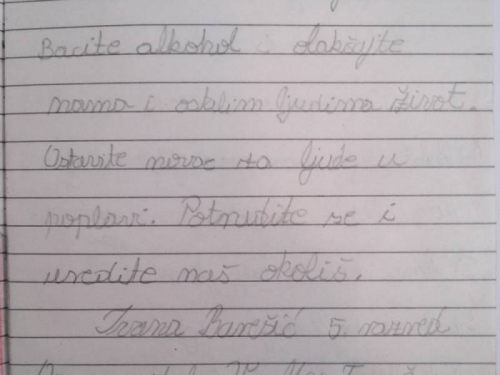 Bacite alkohol i olakšajte
nama i ostalim ljudima život.
Ostavite novac za ljude u
poplavi. Potrudite se i
uredite naš okoliš.
Ivana Barešić 5. razred